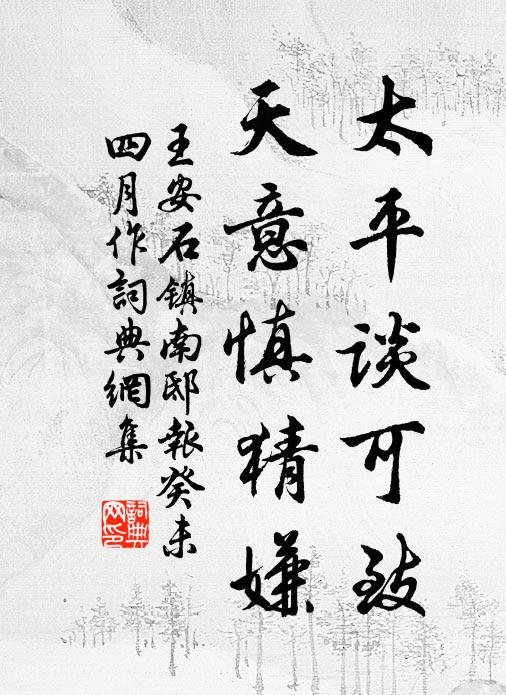 太平谈可致
天意慎猜嫌
王安石镇南邸报癸未
四月作词典网集
词典
网印